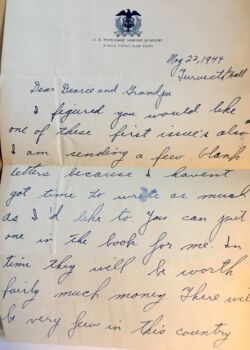 U.S. MERCHANT MARINE ACADEMY
KINGS POINT, NEW YORK
May 22, 1944
Hall
Dear Dearie and Grandpa
I figured you would like
one of these first issue's also
I am sending a few blank
letters because I havent
got time to write as much
as I'd like to. You can put
one in the book for me. In
time they will be worth
fairly much money. There will
be very few in this country